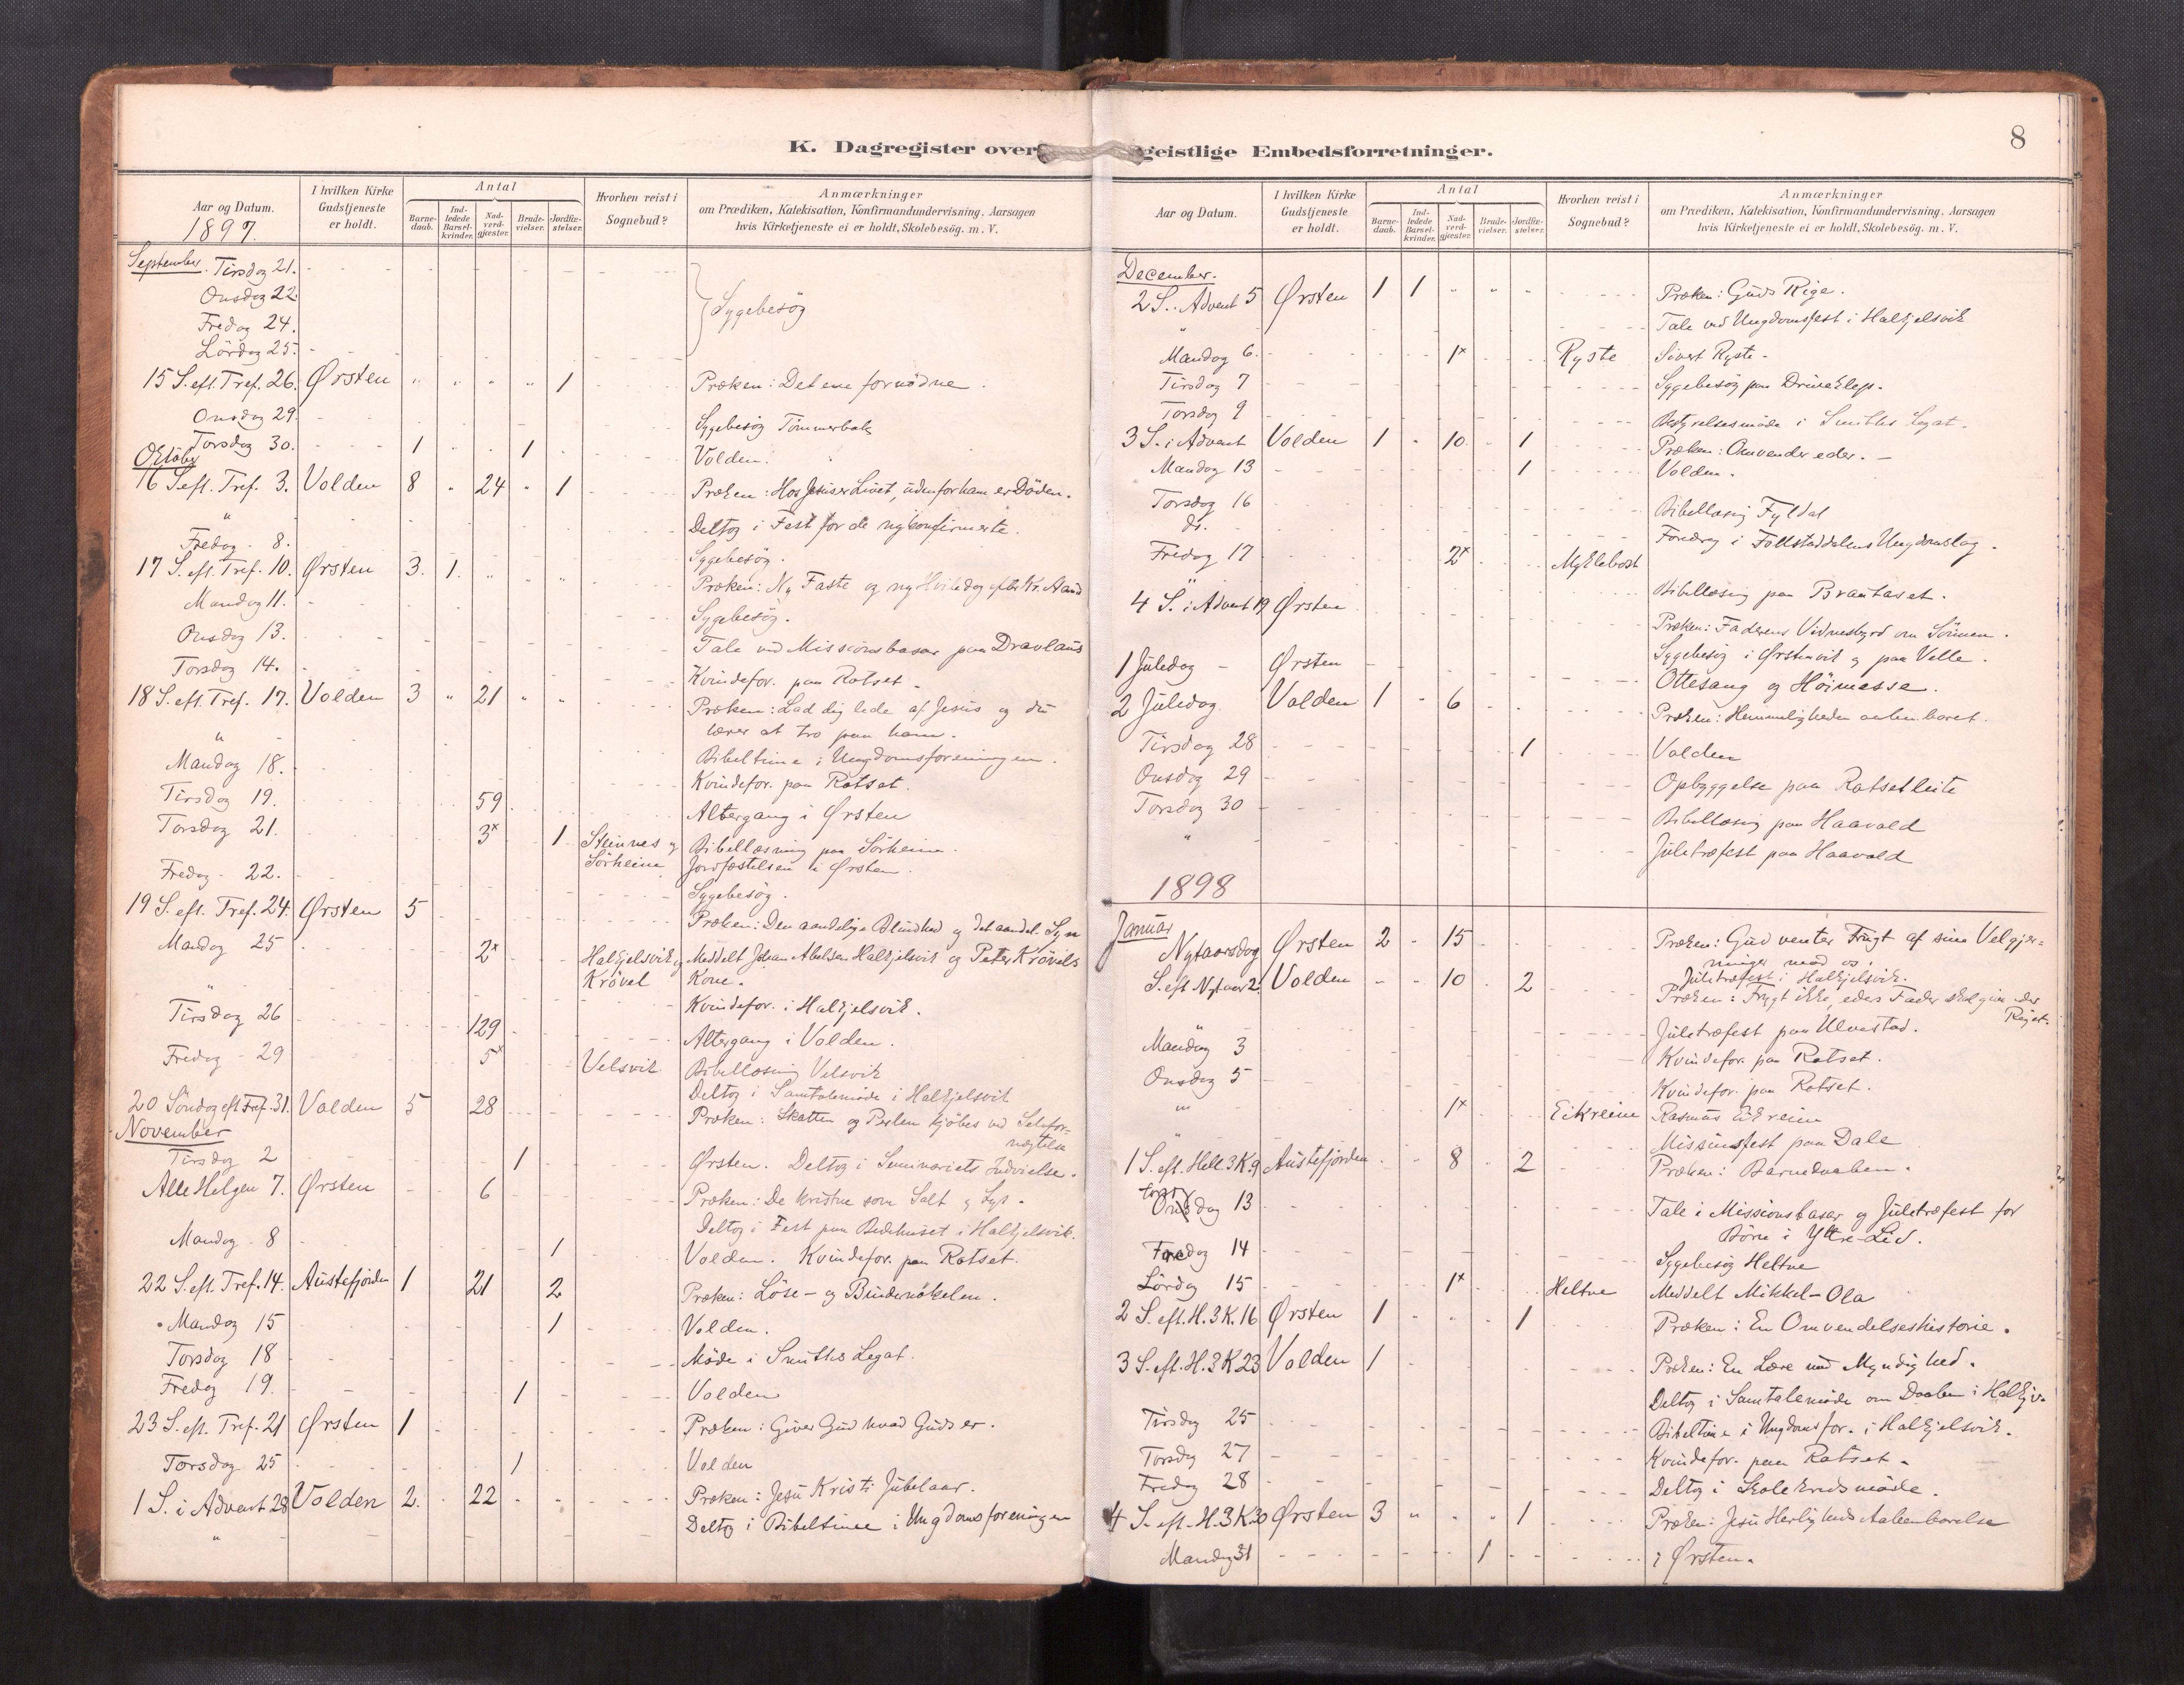 K. Dagregister over
Aar og Datum.
1897.
I hvilken Kirke Gudstjeneste er holdt.
Antal
Barne-daab.
Ind-ledede Barsel-kvinder.
Nad-verd-gjæster.
Brude-vielser.
Jordfæ-stelser.
Hvorhen reist i Sognebud?
Anmærkninger
om Prædiken, Katekisation, Konfirmandundervisning, Aarsagen
hvis Kirketjeneste ei er holdt, Skolebesøg. m. V.
September. Tirsdag 21.
Onsdag 22.
Fredag 24. Sygebesøg
Lördag 25.
15 S. eft. Tref. 26. Ørsten " " " " 1 Præken: Det ene fornødne.
Onsdag 29. Sygebesøg Tömmerbak
Torsdag 30. 1 1 Volden.
Oktober
16 S. eft. Tref. 3. Volden 8 " 24 " 1 Præken: Hos Jesus er Livet, udenfor ham er Döden.
" Deltog i Fest for de nykonfirmerte.
Fredag 8. Sygebesøg.
17 S. eft. Tref. 10. Ørsten 3. 1. " " " Præken: Ny Faste og ny Hviledag efter Kr. Aand
Mandag 11. Sygebesøg.
Onsdag 13. Tale ved Missionsbasar paa Dravlaus
Torsdag 14. Kvindefor. paa Rotset.
18 S. eft. Tref. 17. Volden 3 " 21 " " Præken: Lad dig lede af Jesus og du
lærer at tro paa ham.
" Bibeltime i Ungdomsforeningen.
Mandag 18. Kvindefor. paa Rotset.
Tirsdag 19. 59 Altergang i Ørsten
Torsdag 21. 3x 1 Steinnes og Bibellæsning paa Sörheim.
Sörheim Jordfæstelsen i Ørsten.
Fredag 22. Sygebesøg.
19 S. eft. Tref. 24. Ørsten 5 Præken: Den aandelige Blindhed og det aandel. Syn
Mandag 25 2x Halkjelsvik og Meddelt Johan Abelsen Halkjelsvik og Peter Krövels
Krövel Kone.
" Kvindefor. i Halkjelsvik.
Tirsdag 26 129 Altergang i Volden.
Fredag 29 5x Velsvik Bibellæsning Velsvik
Deltog i Samtalemöde i Halkjelsvik
20 Söndag eft Tref. 31. Volden 5 28 Præken: Skatten og Perlen kjöbes ved Selvfor-
nægtelse
November
Tirsdag 2 1 Ørsten. Deltog i Seminariets Indvielse.
Alle Helgen 7. Ørsten 6 Præken: De kristne som Salt og Lys.
Deltog i Fest paa Bedehuset i Halkjelsvik.
Mandag 8 1 Volden. Kvindefor. paa Rotset.
22 S. eft. Tref. 14. Austefjorden 1 21 2 Præken: Löse- og Bindenökelen.
Mandag 15 1 Volden.
Torsdag 18 Möde i Smiths Legat.
Fredag 19. 1 Volden
23 S. eft. Tref. 21 Ørsten 1 Præken: Giver Gud hvad Guds er.
Torsdag 25 1 Volden
1 S. i Advent 28 Volden 2. 22 Præken: Jesu Kristi Jubelaar.
" Deltog i Bibeltime i Ungdomsforeningen
geistlige Embedsforretninger.
8
Aar og Datum.
I hvilken Kirke Gudstjeneste er holdt.
Antal
Barne-daab.
Ind-ledede Barsel-kvinder.
Nad-verd-gjæster.
Brude-vielser.
Jordfæ-stelser.
Hvorhen reist i Sognebud?
Anmærkninger
om Prædiken, Katekisation, Konfirmandundervisning, Aarsagen
hvis Kirketjeneste ei er holdt, Skolebesøg. m. V.
December.
2 S. Advent 5 Ørsten 1 1 " " " Præken: Guds Rige.
" Tale ved Ungdomsfest i Halkjelsvik
Mandag 6. 1x Ryste Sivert Ryste.
Tirsdag 7 Sygebesøg paa Driveklep.
Torsdag 9 Bestyrelsesmöde i Smiths Legat.
3 S. i Advent Volden 1 " 10 1 Præken: Omvender eder.
Mandag 13 1 Volden.
Torsdag 16 Bibellæsning Fyldal
do. Foredrag i Folkestaddalens Ungdomslag.
Fredag 17 2x Myklebost
" Bibellæsning paa Brautaset.
4 S. i Advent 19 Ørsten Præken: Faderens Vidnesbyrd om Sönnen.
Sygebesøg i Ørstenvik og paa Velle.
1 Juledag Ørsten Ottesang og Höimesse.
2 Juledag. Volden 1 6 Præken: Hemmeligheden aabenbaret.
Tirsdag 28 1 Volden
Onsdag 29 Opbyggelse paa Rotsetleite
Torsdag 30 Bibellæsning paa Haavold
" Juletræfest paa Haavold
1898
Januar
Nytaarsdag Ørsten 2 15 Præken: Gud venter Frugt af sine Velgjer-
ninger mod os.
Juletræfest i Halkjelsvik.
S. eft Nytaar 2. Volden 10 2 Præken: Frygt ikke, eders Fader skal give eder
Riget.
Juletræfest paa Ulvestad.
Mandag 3 Kvindefor. paa Rotset.
Onsdag 5 Kvindefor. paa Rotset.
" 1x Eikreim Rasmus Eikreim
" Missionsfest paa Dale
1 S. eft. Hell. 3 K. 9 Austefjorden 8 2 Præken: Barnedaaben.
Torsdag 13 Tale i Missionsbasar og Juletræfest for
Börn i Ytre-Lid.
Fredag 14 Sygebesøg Heltne
Lördag 15 1x Heltne Meddelt Mikkel-Ola
2 S. eft. H. 3 K. 16 Ørsten 1 " " 1 Præken: En Omvendelseshistorie.
3 S. eft. H. 3 K 23 Volden 1 Præken: En Lære med Myndighed.
Deltog i Samtalemöde om Daaben i Halkjv.
Tirsdag 25 Bibeltime i Ungdomsfor. i Halkjelsvik.
Torsdag 27 Kvindefor. paa Rotset.
Fredag 28 Deltog i Skolekredsmöde.
4 S. eft. H. 3 K. 30 Ørsten 3 " " " 1 Præken: Jesu Herligheds Aabenbarelse
Mandag 31 1 i Ørsten.